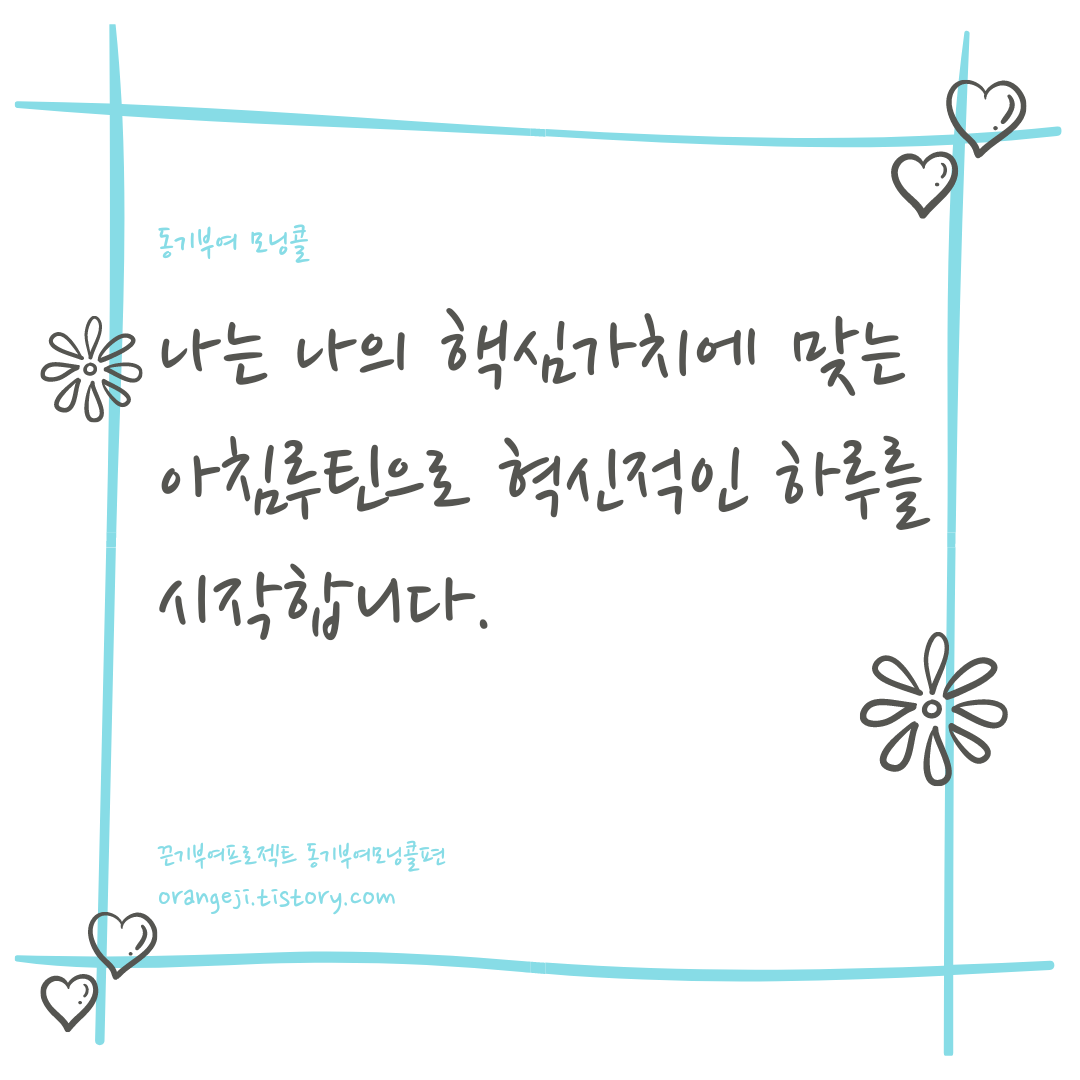 동기부여 모닝콜
나는 나의 핵심가치에 맞는
아침루틴으로 혁신적인 하루를
시작합니다.
끈기부여프로젝트 동기부여모닝콜편
orangeji.tistory.com